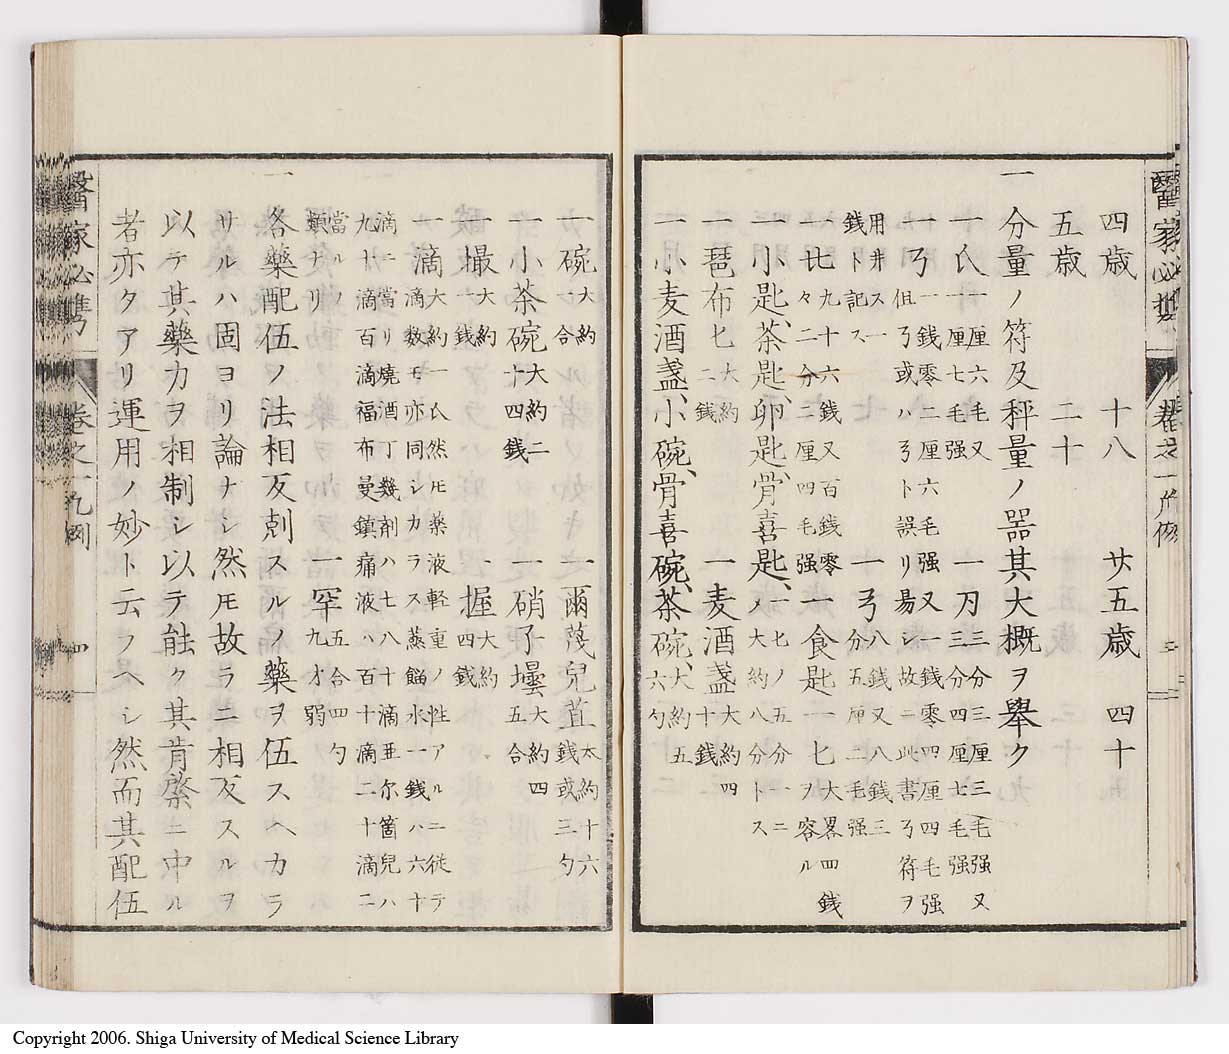 四歳 十八 廿五歳 四十
五歳 二十
一 分量ノ符及秤量ノ器其大概ヲ舉ク
一厘六毛又
一厘七毛强
一刀 三分三厘三毛强又
三分四厘七毛强
一銭零二厘六毛强又一銭零四厘四毛强
但弓或ハ弓ト誤リ易シ故ニ此書弓符ヲ
用井ス一
銭ト記ス
一弓 八銭又八銭三
分五厘二毛强
九十六銭又百銭零
二分二厘四毛强
一食匙 一匕大畧四銭
ヲ容ル
一小匙、茶匙、卵匙、骨喜匙、 一匕ノ五分一ニ
ノ大約八分トス
一琵布匕 大約
二銭
一麦酒盞 大約四
十銭
一小麦酒盞、小碗、骨喜碗、茶碗、 大約五
六勺
一碗 大約
一合
一爾蔑兒苴 大約十六
銭或三勺
一小茶碗 大約二
十四銭
一硝子壜 大約四
五合
一撮 大約
一銭
一握 大約
四銭
一滴 大約一氏然𪜈藥液輕重ノ性アルニ從テ
滴数モ亦同シカラス蒸餾水一銭ハ六十
滴ニ當リ燒酒丁幾剤ハ七八十滴亜尔箇兒ハ
九十滴百滴福布曼鎮痛液ハ百十滴二十滴ニ
當ルノ
類ナリ
一罕 五合四勺
九才弱
一 各藥配伍ノ法相反剋スルノ藥ヲ伍スヘカラ
サルハ固ヨリ論ナシ然𪜈故ラニ相反スルヲ
以テ其藥力ヲ相制シ以テ能ク其肯綮ニ中ル
者亦タアリ運用ノ妙ト云フヘシ然而其配伍
醫家必携
卷之一凡例
四
Copyright 2006. Shiga University of Medical Science Library